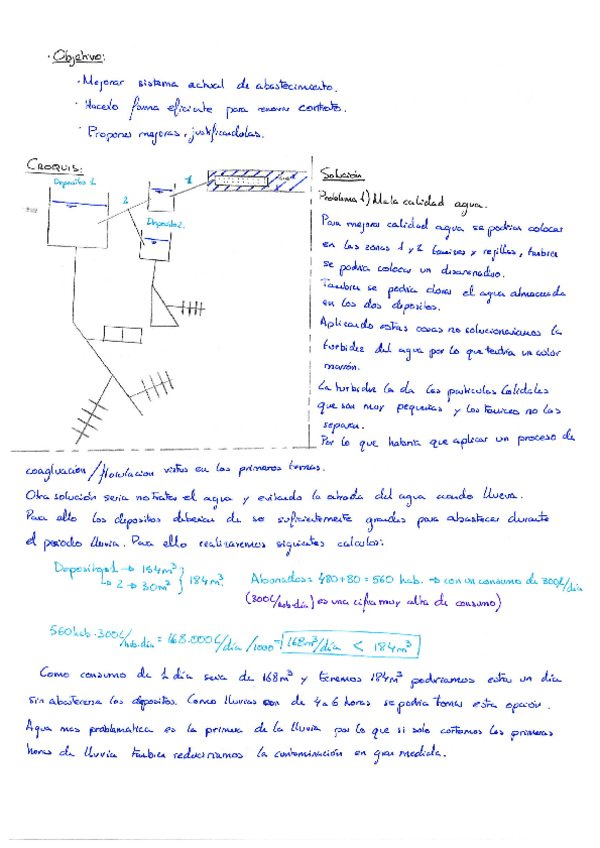 · Objetivo:
· Mejorar sistema actual de abastecimiento.
· Hacerlo forma eficiente para renovar contrato.
· Proponer mejoras, justificandolas.
CROQUIS:
Deposito 1.
2
1
Deposito 2.
Solución
Problema 1) Mala calidad agua.
Para mejorar calidad agua se podrian colocar
en las zonas 1 y 2 tamices y rejillas, tambien
se podria colocar un desarenador.
Tambien se podria clorar el agua almacenada
en los dos depositos.
Aplicando estas cosas no solucionariamos la
turbidez del agua por lo que tendria un color
marrón.
La turbidez la da las particulas coloidales
que son muy pequeñas y los tamices no las
separan.
Por lo que habria que aplicar un proceso de
coagulación/floculacion vistos en los primeros temas.
Otra solución seria no tratar el agua y evitando la entrada del agua cuando llueva.
Para ello los depositos deberian de ser suficientemente grandes para abastecer durante
el periodo lluvia. Para ello realizaremos siguientes calculos:
Depositos 1 → 154m³
→ 2 → 30m³ } 184m³
Abonados = 480+80 = 560 hab. → con un consumo de 300L/día
(300L/hab·día) es una cifra muy alta de consumo)
560hab·300L/hab·día = 168.000L/día /1000 → 168m³/día < 184m³
Como consumo de 1 día sera de 168m³ y tenemos 184m³ podriamos estar un día
sin abastecerse los depositos. Como lluvias son de 4 a 6 horas se podria tomar esta opción.
Agua mas problematica es la primera de la lluvia por lo que si solo cortamos las primeras
horas de lluvia tambien reduciriamos la contaminación en gran medida.